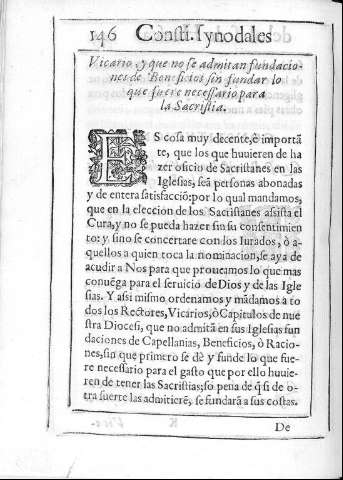 146 Consti. synodales
Vicario, y que no se admitan fundacio-
nes de Beneficios sin fundar lo
que fuere necessario para
la Sacristia.
ES cosa muy decente, è importã
te, que los que huuieren de ha
zer oficio de Sacristanes en las
Iglesias, seã personas abonadas
y de entera satisfacciõ: por lo qual mandamos,
que en la eleccion de los Sacristanes assista el
Cura, y no se pueda hazer sin su consentimien
to: y sino se concertare con los Iurados, ò a-
quellos a quien toca la nominacion, se aya de
acudir a Nos para que proueamos lo que mas
conuẽga para el seruicio de Dios y de las Igle
sias. Y assi mismo ordenamos y mãdamos a to
dos los Rectores, Vicarios, ò Capitulos de nue
stra Diocesi, que no admitã en sus Iglesias fun
daciones de Capellanias, Beneficios, ò Racio-
nes, sin que primero se dè y funde lo que fue-
re necessario para el gasto que por ello huuie-
ren de tener las Sacristias; so pena de q̃ si de o-
tra suerte las admitierẽ, se fundarã a sus costas.
De